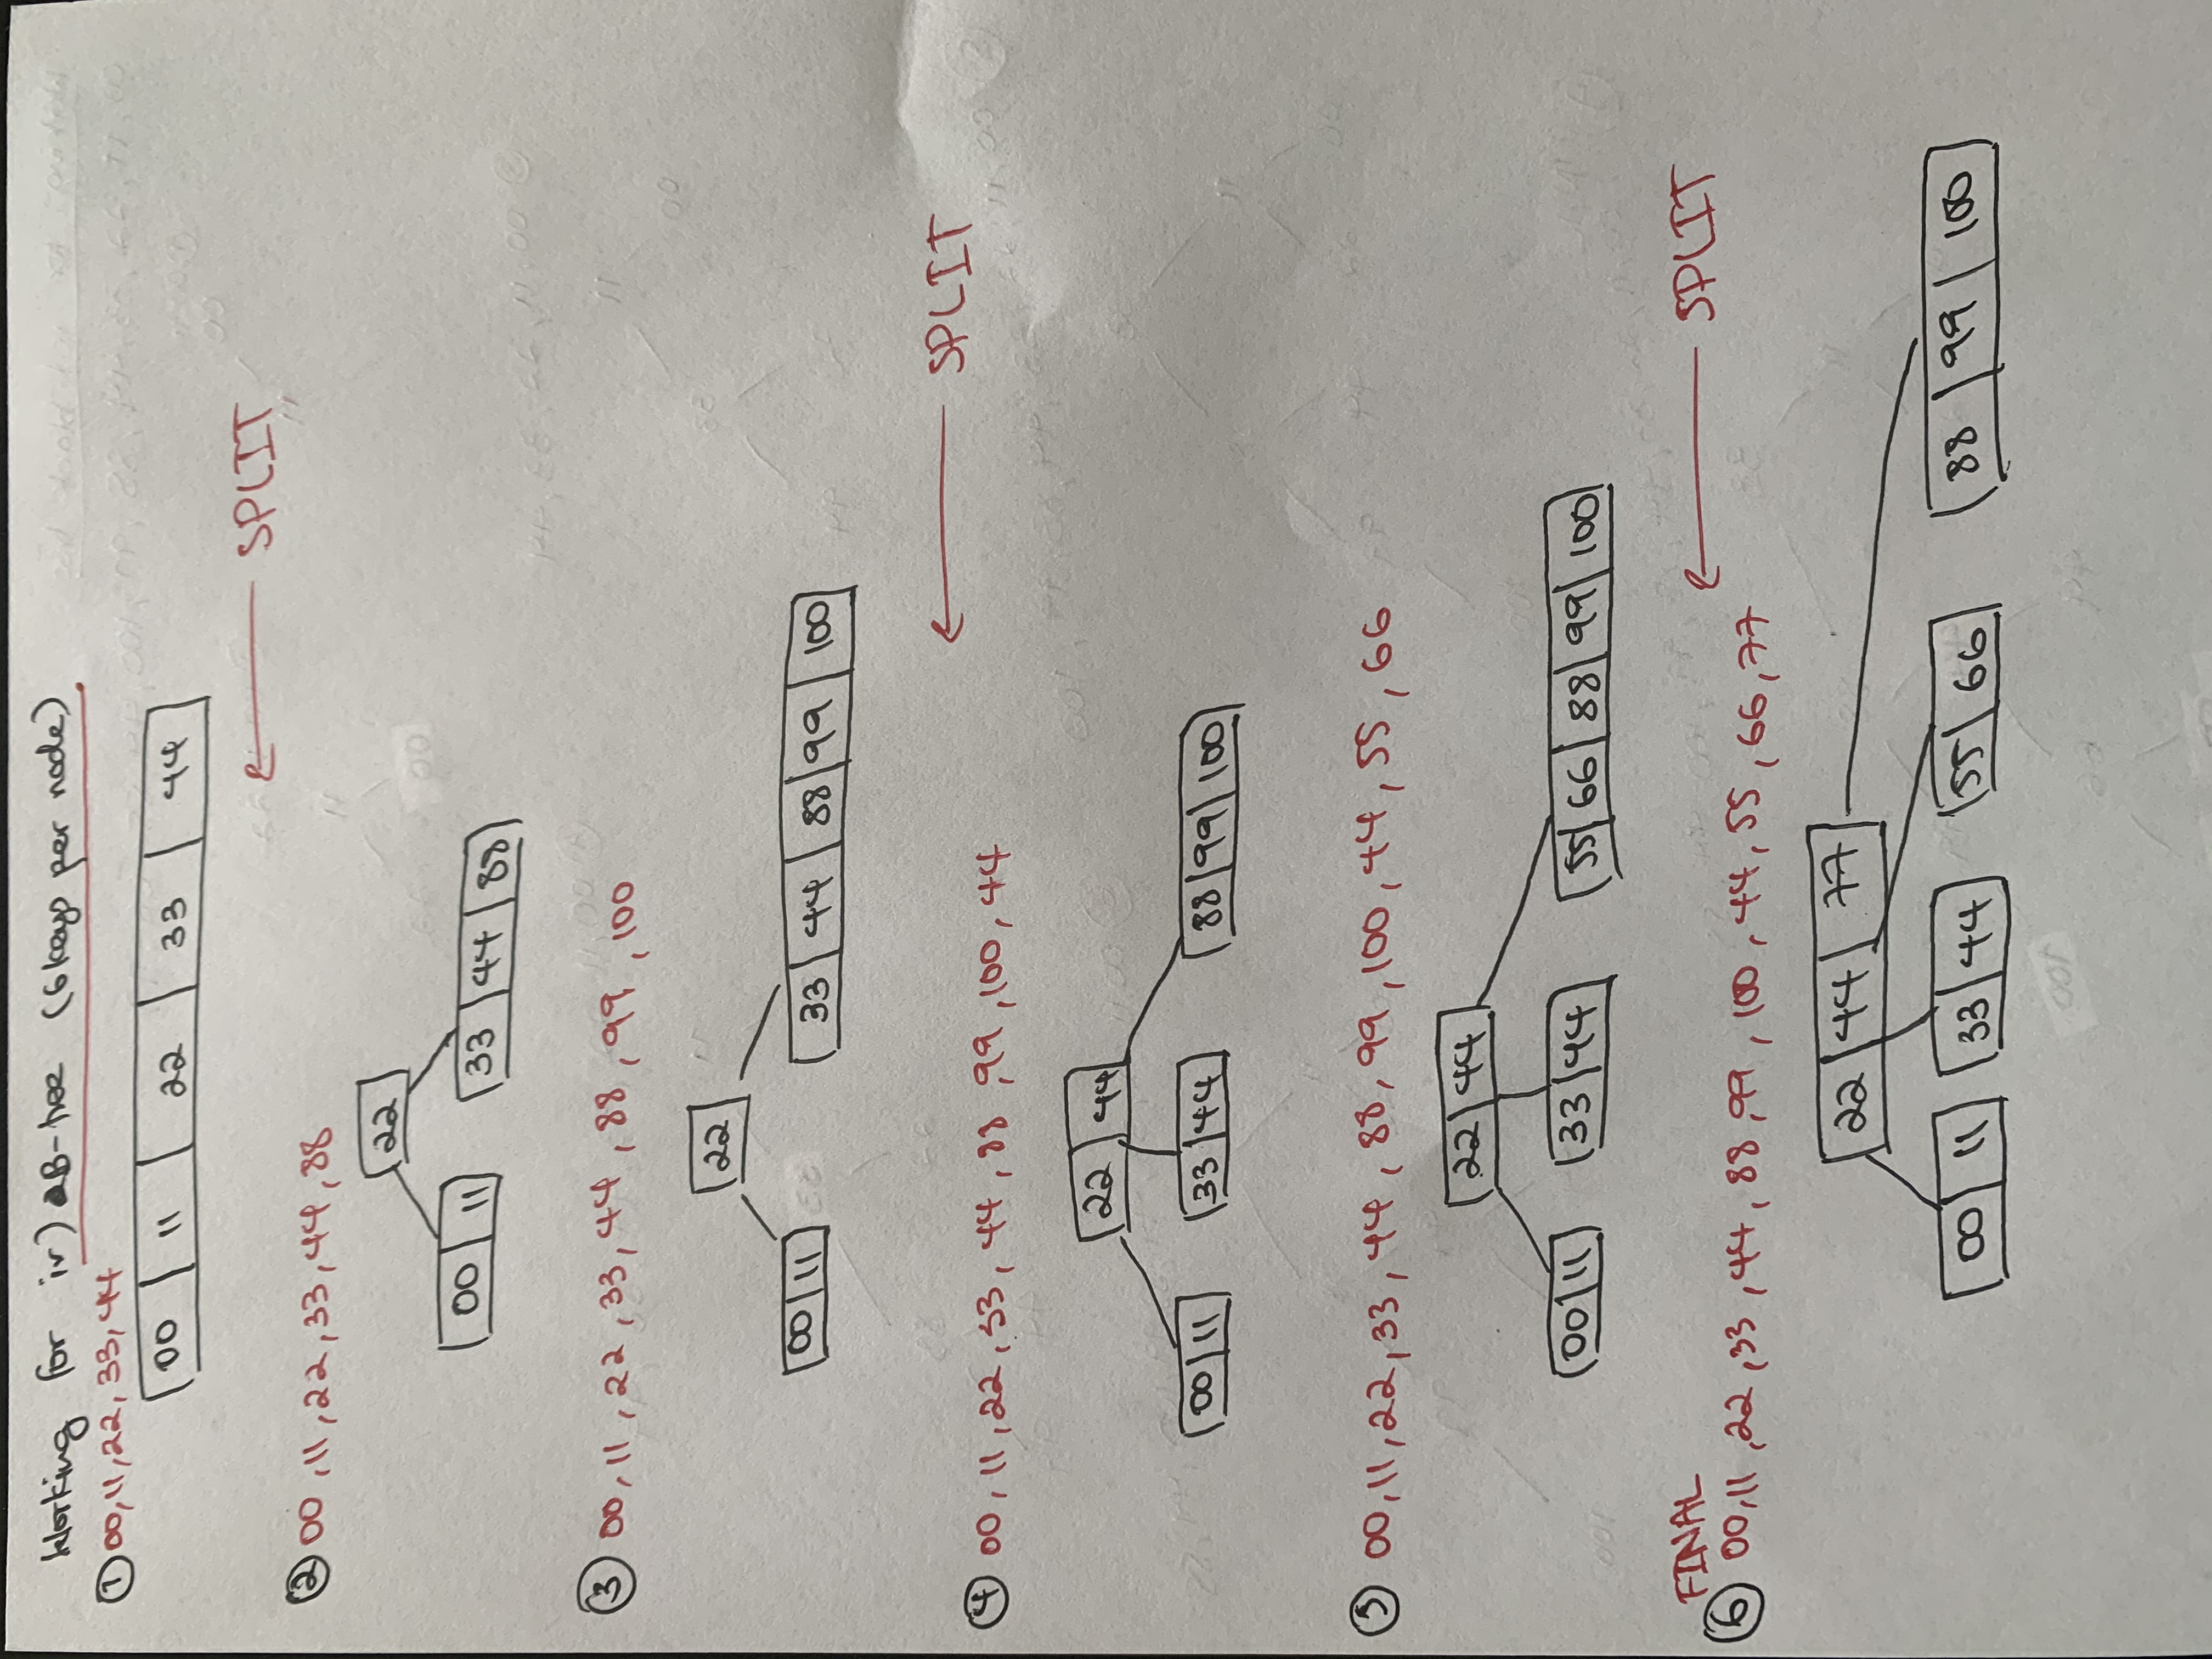 Working for iv) B-tree (6 keys per node)
① 00, 11, 22, 33, 44
00 11 22 33 44
SPLIT
② 00, 11, 22, 33, 44, 88
22
00 11 33 44 88
③ 00, 11, 22, 33, 44, 88, 99, 100
22
00 11 33 44 88 99 100
SPLIT
④ 00, 11, 22, 33, 44, 88, 99, 100, 44
22 44
00 11 33 44 88 99 100
⑤ 00, 11, 22, 33, 44, 88, 99, 100, 44, 55, 66
22 44
00 11 33 44 55 66 88 99 100
FINAL
SPLIT
⑥ 00, 11, 22, 33, 44, 88, 99, 100, 44, 55, 66, 77
22 44 77
00 11 33 44 55 66 88 99 100